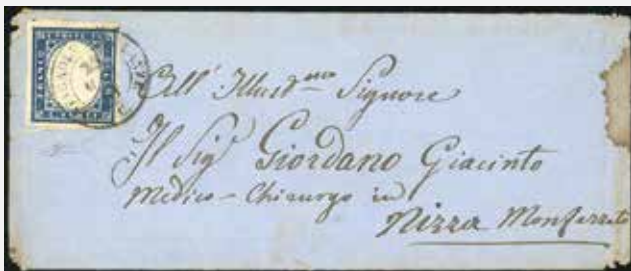 All' Illust.mo Signore
Il Sig.r Giordano Giacinto
Medico - Chirurgo in
Nizza Monferrato